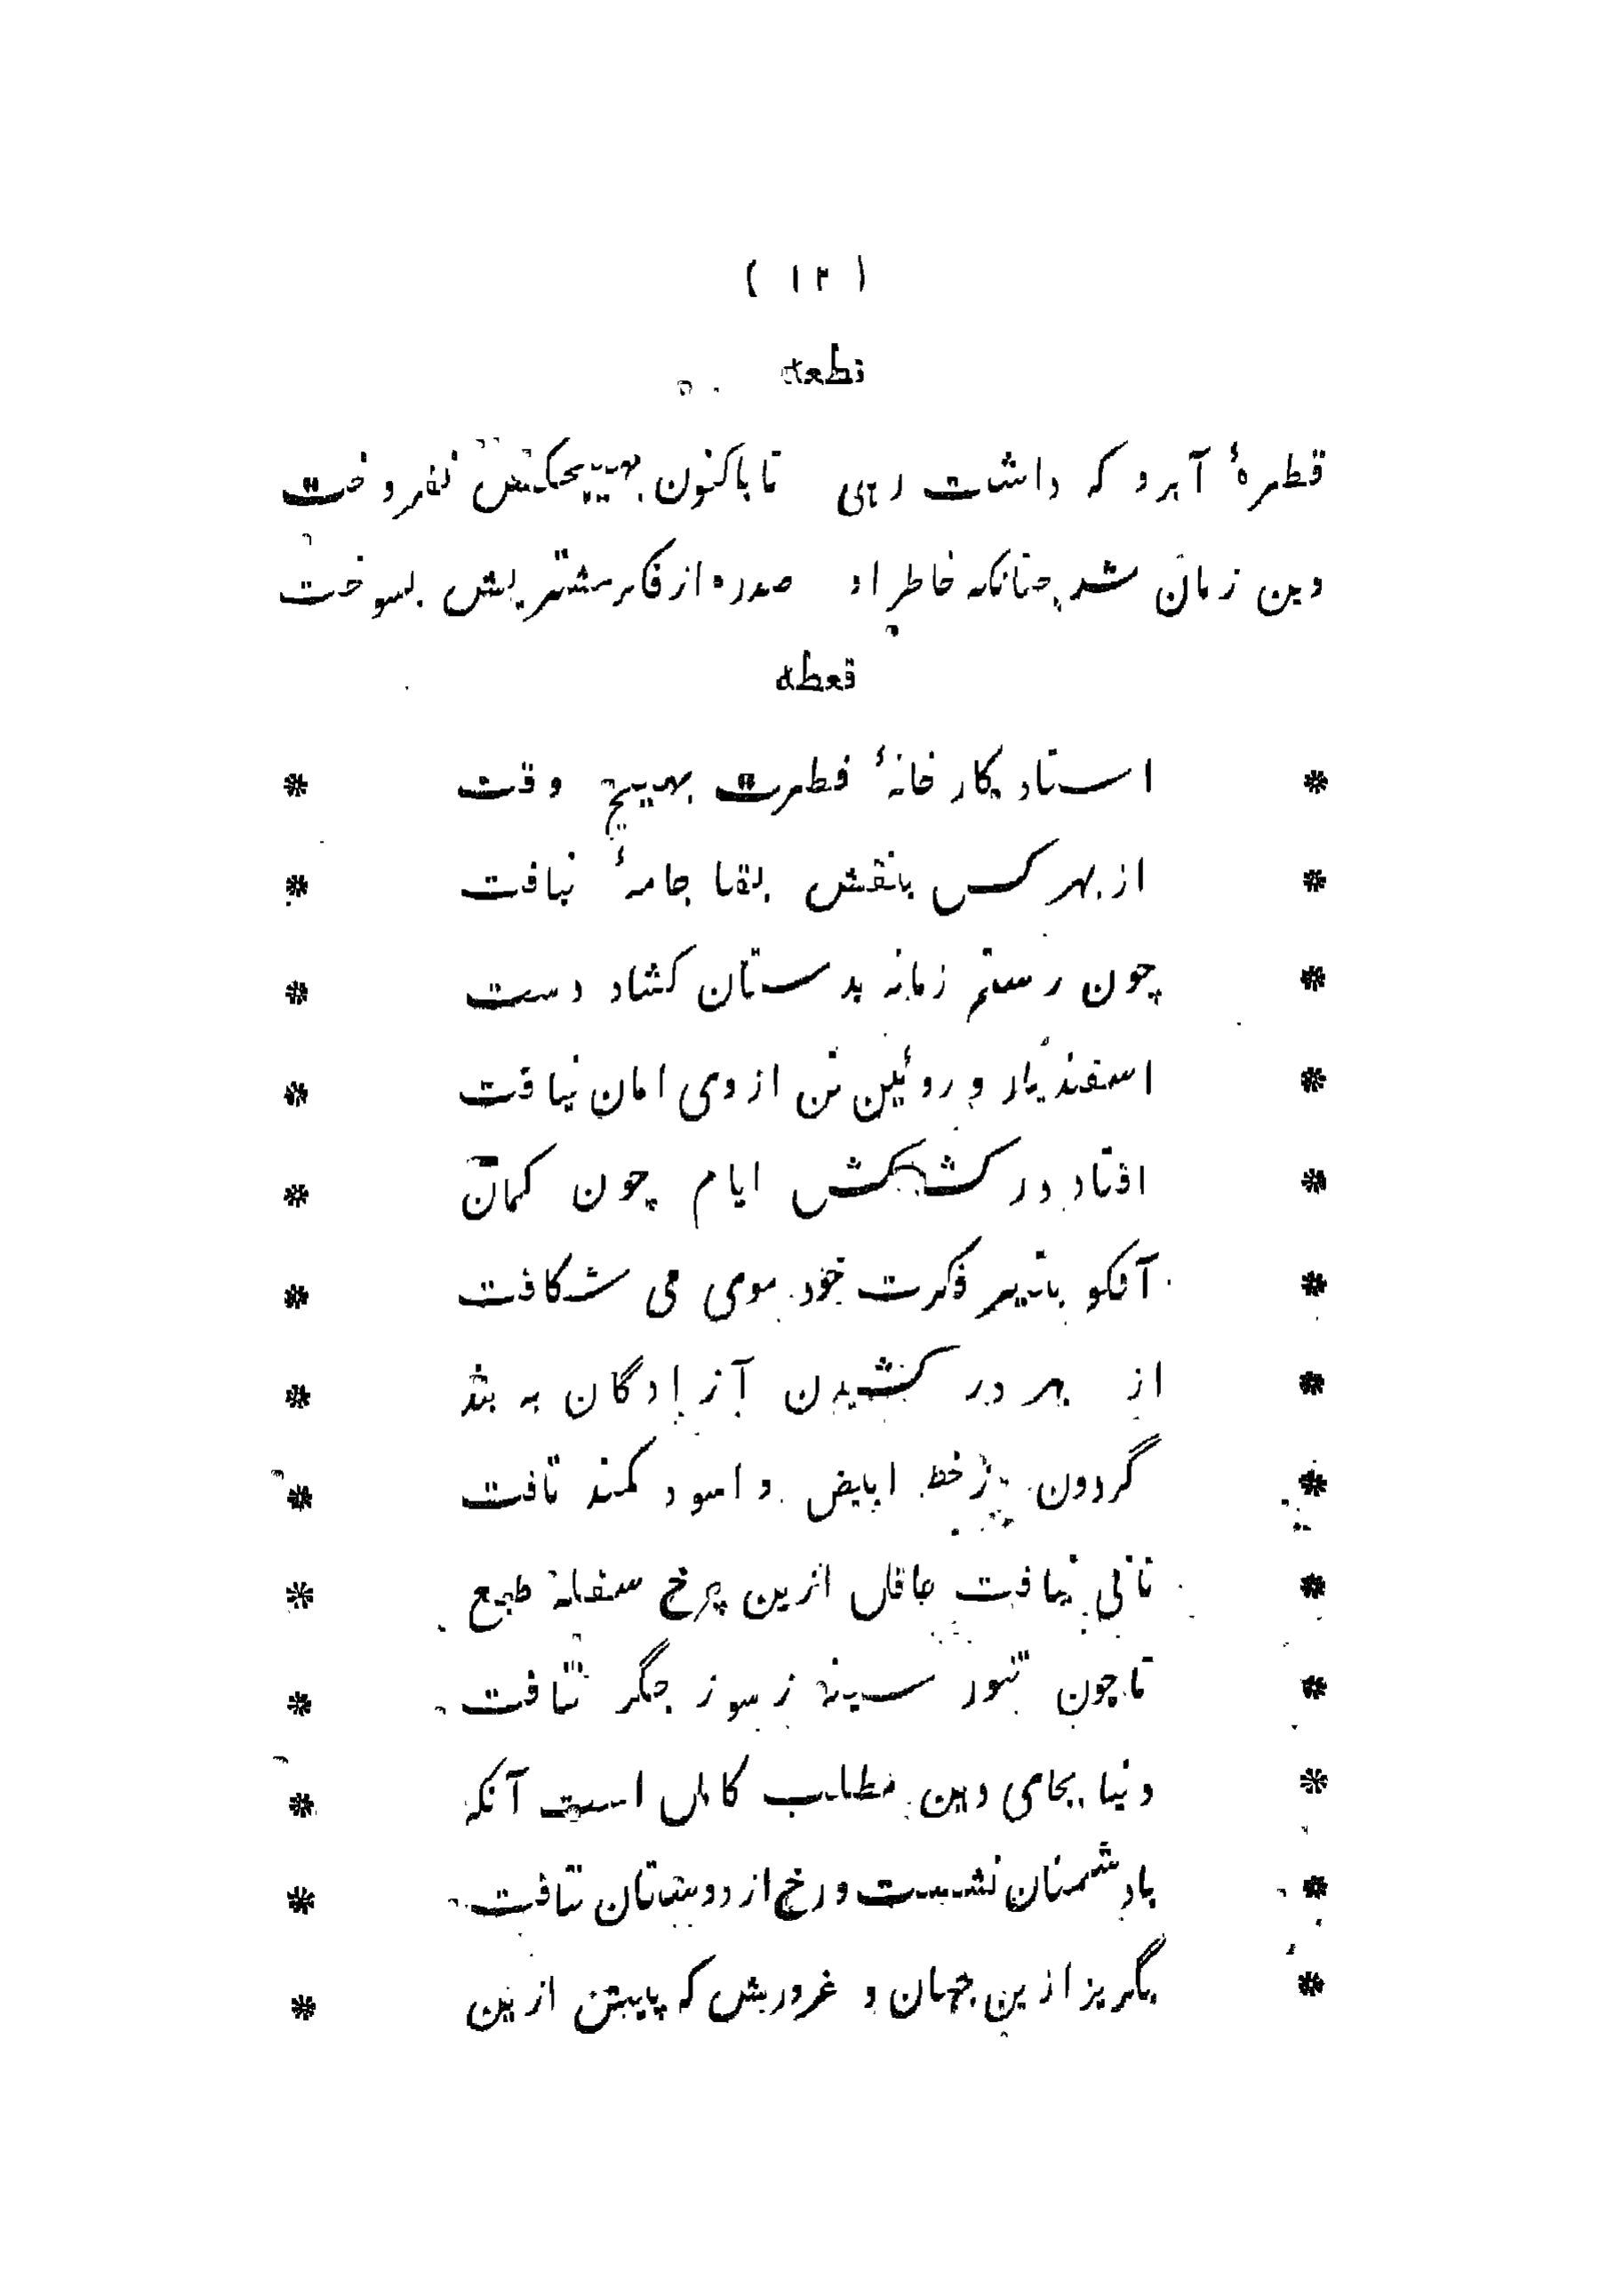 ( ۱۲ )
قطعه
قطرهٔ آبرو که داشت رهی تا باکنون بهیچکس نفروخت
وین زمان شد چنانکه خاطر او صدره از فکر مشتریش بسوخت
قعطه
* استاد کارخانهٔ فطرت بهیچ وقت *
* از بهر کس بنقش بقا جامهٔ نیافت *
* چون رستم زمانه بدستان کشاد دست *
* اسفندیار و روئین تن از وی امان نیافت *
* افتاد در کشاکش ایام چون کمان *
* آنکو بتیر فکرت خود موی می شکافت *
* از بهر در کشیدن آزادگان به بند *
* گردون ز خط ابیض و اسود کمند تافت *
* نانی نیافت عاقل ازین چرخ سفله طبع *
* تا چون تنور سینه ز سوز جگر نتافت *
* دنیا بجای دین مطلب کامل است آنکه *
* با دشمنان نشست و رخ از دوستان نتافت *
* بگریز ازین جهان و غرورش که پیش ازین *